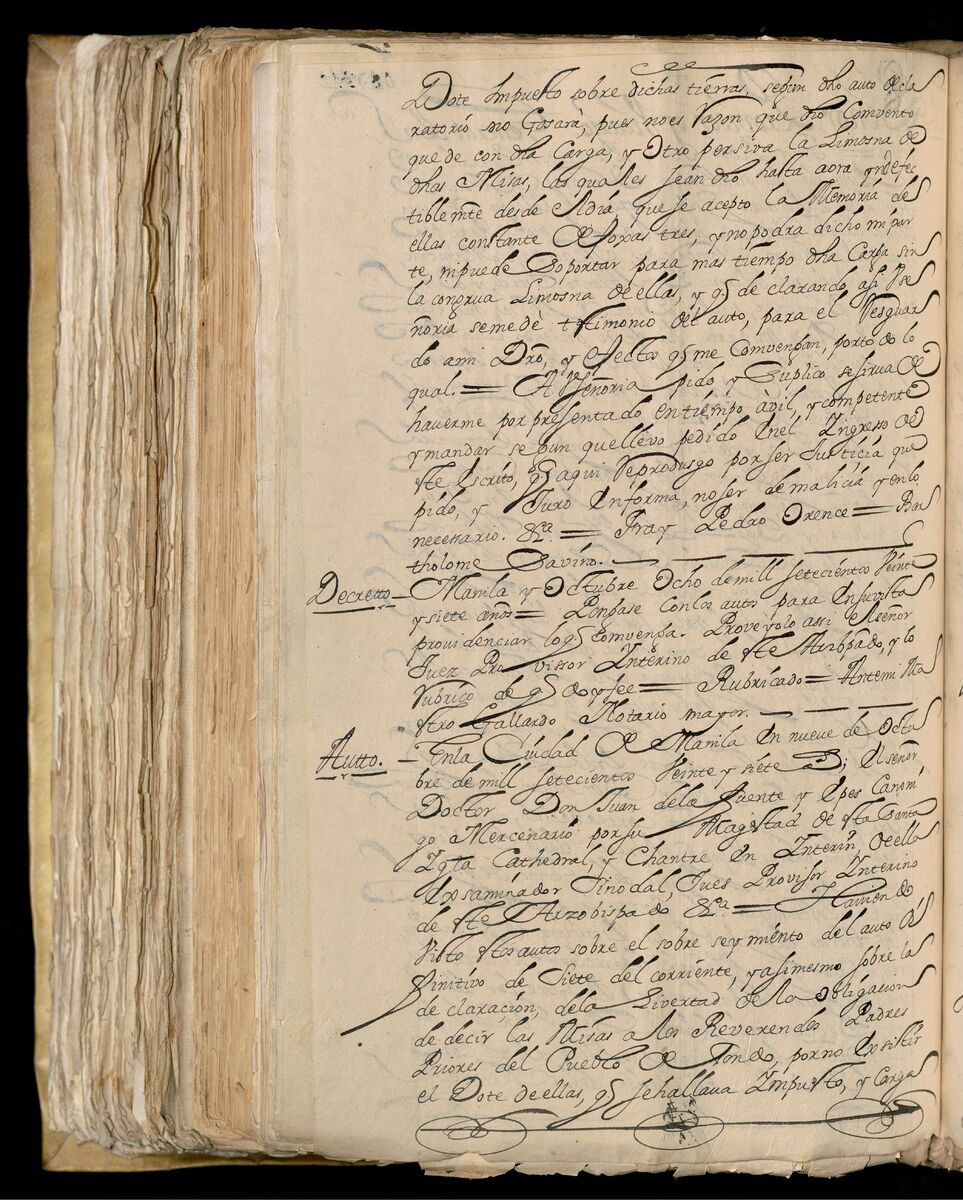 Dote Impuesto sobre dichas tierras, segun dho auto decla
ratorio no Gosarà, pues noes razon que dho Comvento
quede con dha Carga, y Otro persiva la Limosna de
dhas Misas, las quales sean dho hasta aora yndefec
tiblemte desde el dia que se acepto la Memoria de
ellas constante de foxas tres, y no podra dicho mi par
te, ni puede Soportar para mas tiempo dha Carga sin
la congrua Limosna de ellas, y qe de clarando asi Vse
ñoria semedè testimonio del auto, para el Resguar
do ami Dro, y efectos qe me Comvengan, portodo lo
qual. = A Vseñoria pido y Suplico sesirva de
haverme por presentado entiempo àvil, y competente
y mandar segun quellevo pedido Enel Ingreso de
este Escrito, qe aqui Reprodusgo por ser Justicia que
pido, y Juro Enforma, no ser demalicia y enlo
necessario. &ca = Fray Pedro Orence = Bar
tholome Savino.
Decretto – Manila y Octubre Ocho demill setecientos Veinte
y siete años = Pongase conlos autos para Ensuvista
providenciar lo qe Comvenga. Proveyolo assi el señor
Juez Provissor Ynterino de este Arzbpado, y lo
rubrico de qe doy fee = Rubricado = Antemi Ma
estro Gallardo Notario mayor.
Autto. – Enla Ciudad de Manila En nueve de Octu
bre de mill setecientos Veinte y siete as; El señor
Doctor Don Juan dela fuente y Epes Canoni
go Mercenario por su Magestad de esta Santa
Ygta Cathedral, y Chantre En Ynterin, de ella
Exsaminador Sinodal, Jues Provisor Ynterino
de este Arzobispado &ca = Haviendo
Visto estos autos sobre el sobre seymiento del auto de
finitivo de Siete del corriente, y asimesmo sobre la
de claracion, dela Livertad de la obligacion
de decir las Misas a los Reverendos Padres
Priores del Pueblo de Tondo, porno Exsistir
el Dote de ellas, qe sehallava Ympuesto, y Carga